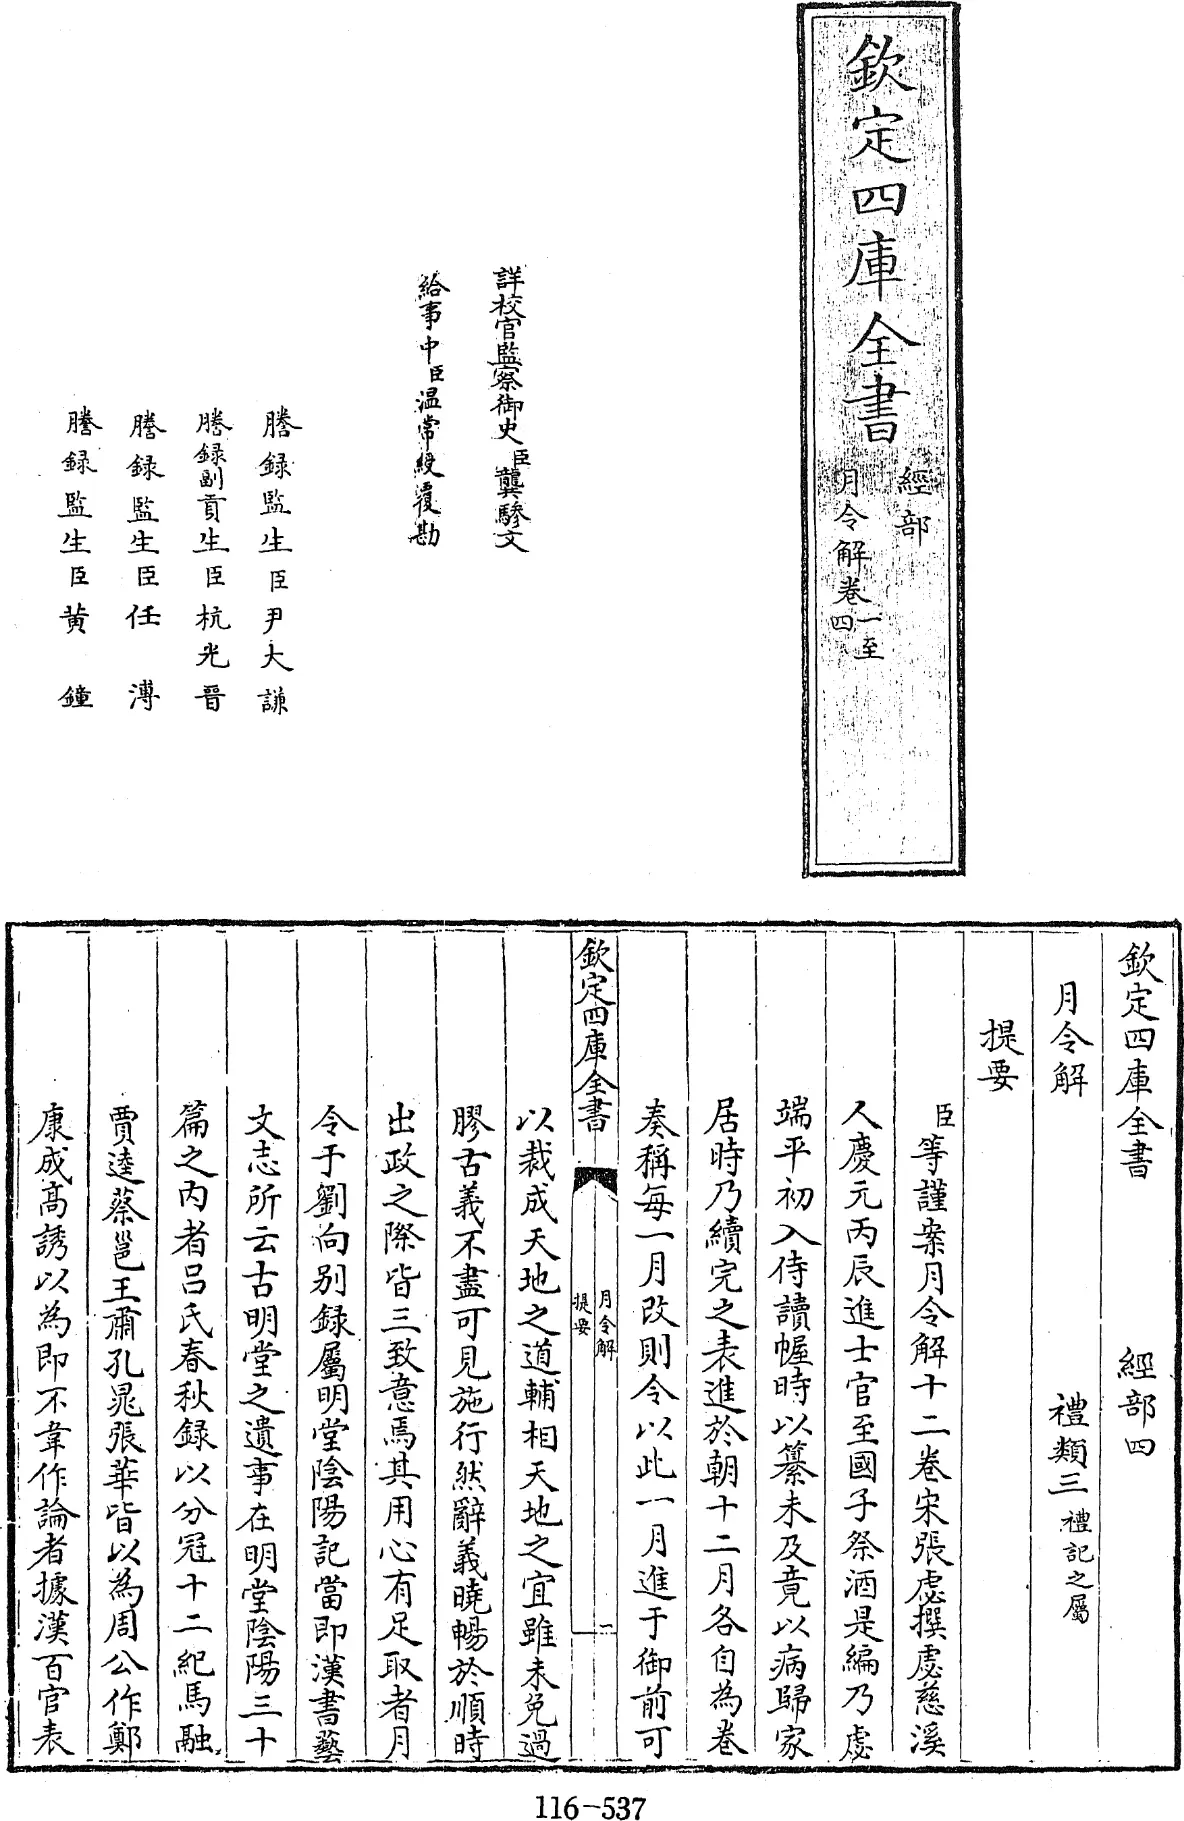 欽定四庫全書
經部
月令解卷一至四
詳校官監察御史臣龔驂文
給事中臣温常綬覆勘
謄録監生臣尹大謙
謄録副貢生臣杭光晉
謄録監生臣任溥
謄録監生臣黄鐘
欽定四庫全書 經部四
月令解 禮類三禮記之屬
提要
臣等謹案月令解十二卷宋張虙撰虙慈溪
人慶元丙辰進士官至國子祭酒是編乃虙
端平初入侍讀幄時以纂未及竟以病歸家
居時乃續完之表進於朝十二月各自為卷
奏稱每一月改則令以此一月進于御前可
欽定四庫全書 月令解 提要 一
以裁成天地之道輔相天地之宜雖未免過
膠古義不盡可見施行然辭義曉暢於順時
出政之際皆三致意焉其用心有足取者月
令于劉向别録屬明堂陰陽記當即漢書藝
文志所云古明堂之遺事在明堂陰陽三十
篇之内者吕氏春秋録以分冠十二紀馬融
賈逵蔡邕王肅孔晁張華皆以為周公作鄭
康成高誘以為即不韋作論者據漢百官表
116-537